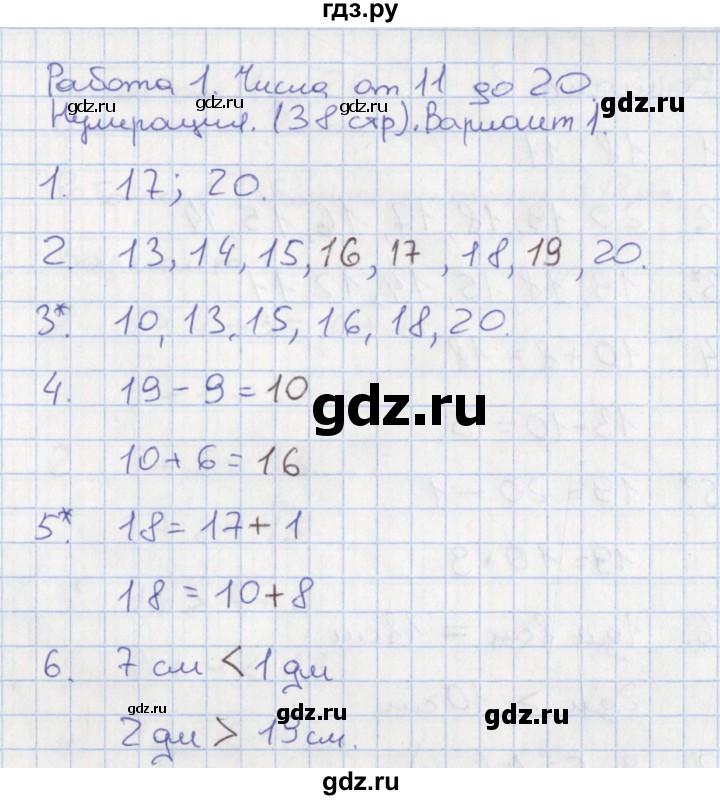 гдз.ру
Работа 1. Числа от 11 до 20.
Нумерация. (38 стр). Вариант 1.
1. 17; 20.
2. 13, 14, 15, 16, 17, 18, 19, 20.
3*. 10, 13, 15, 16, 18, 20.
4. 19 - 9 = 10
10 + 6 = 16
5*. 18 = 17 + 1
18 = 10 + 8
6. 7 см < 1 дм
2 дм > 19 см.
gdz.ru
gdz.ru
gdz.ru
gdz.ru
gdz.ru
gdz.ru
gdz.ru
gdz.ru
gdz.ru
gdz.ru